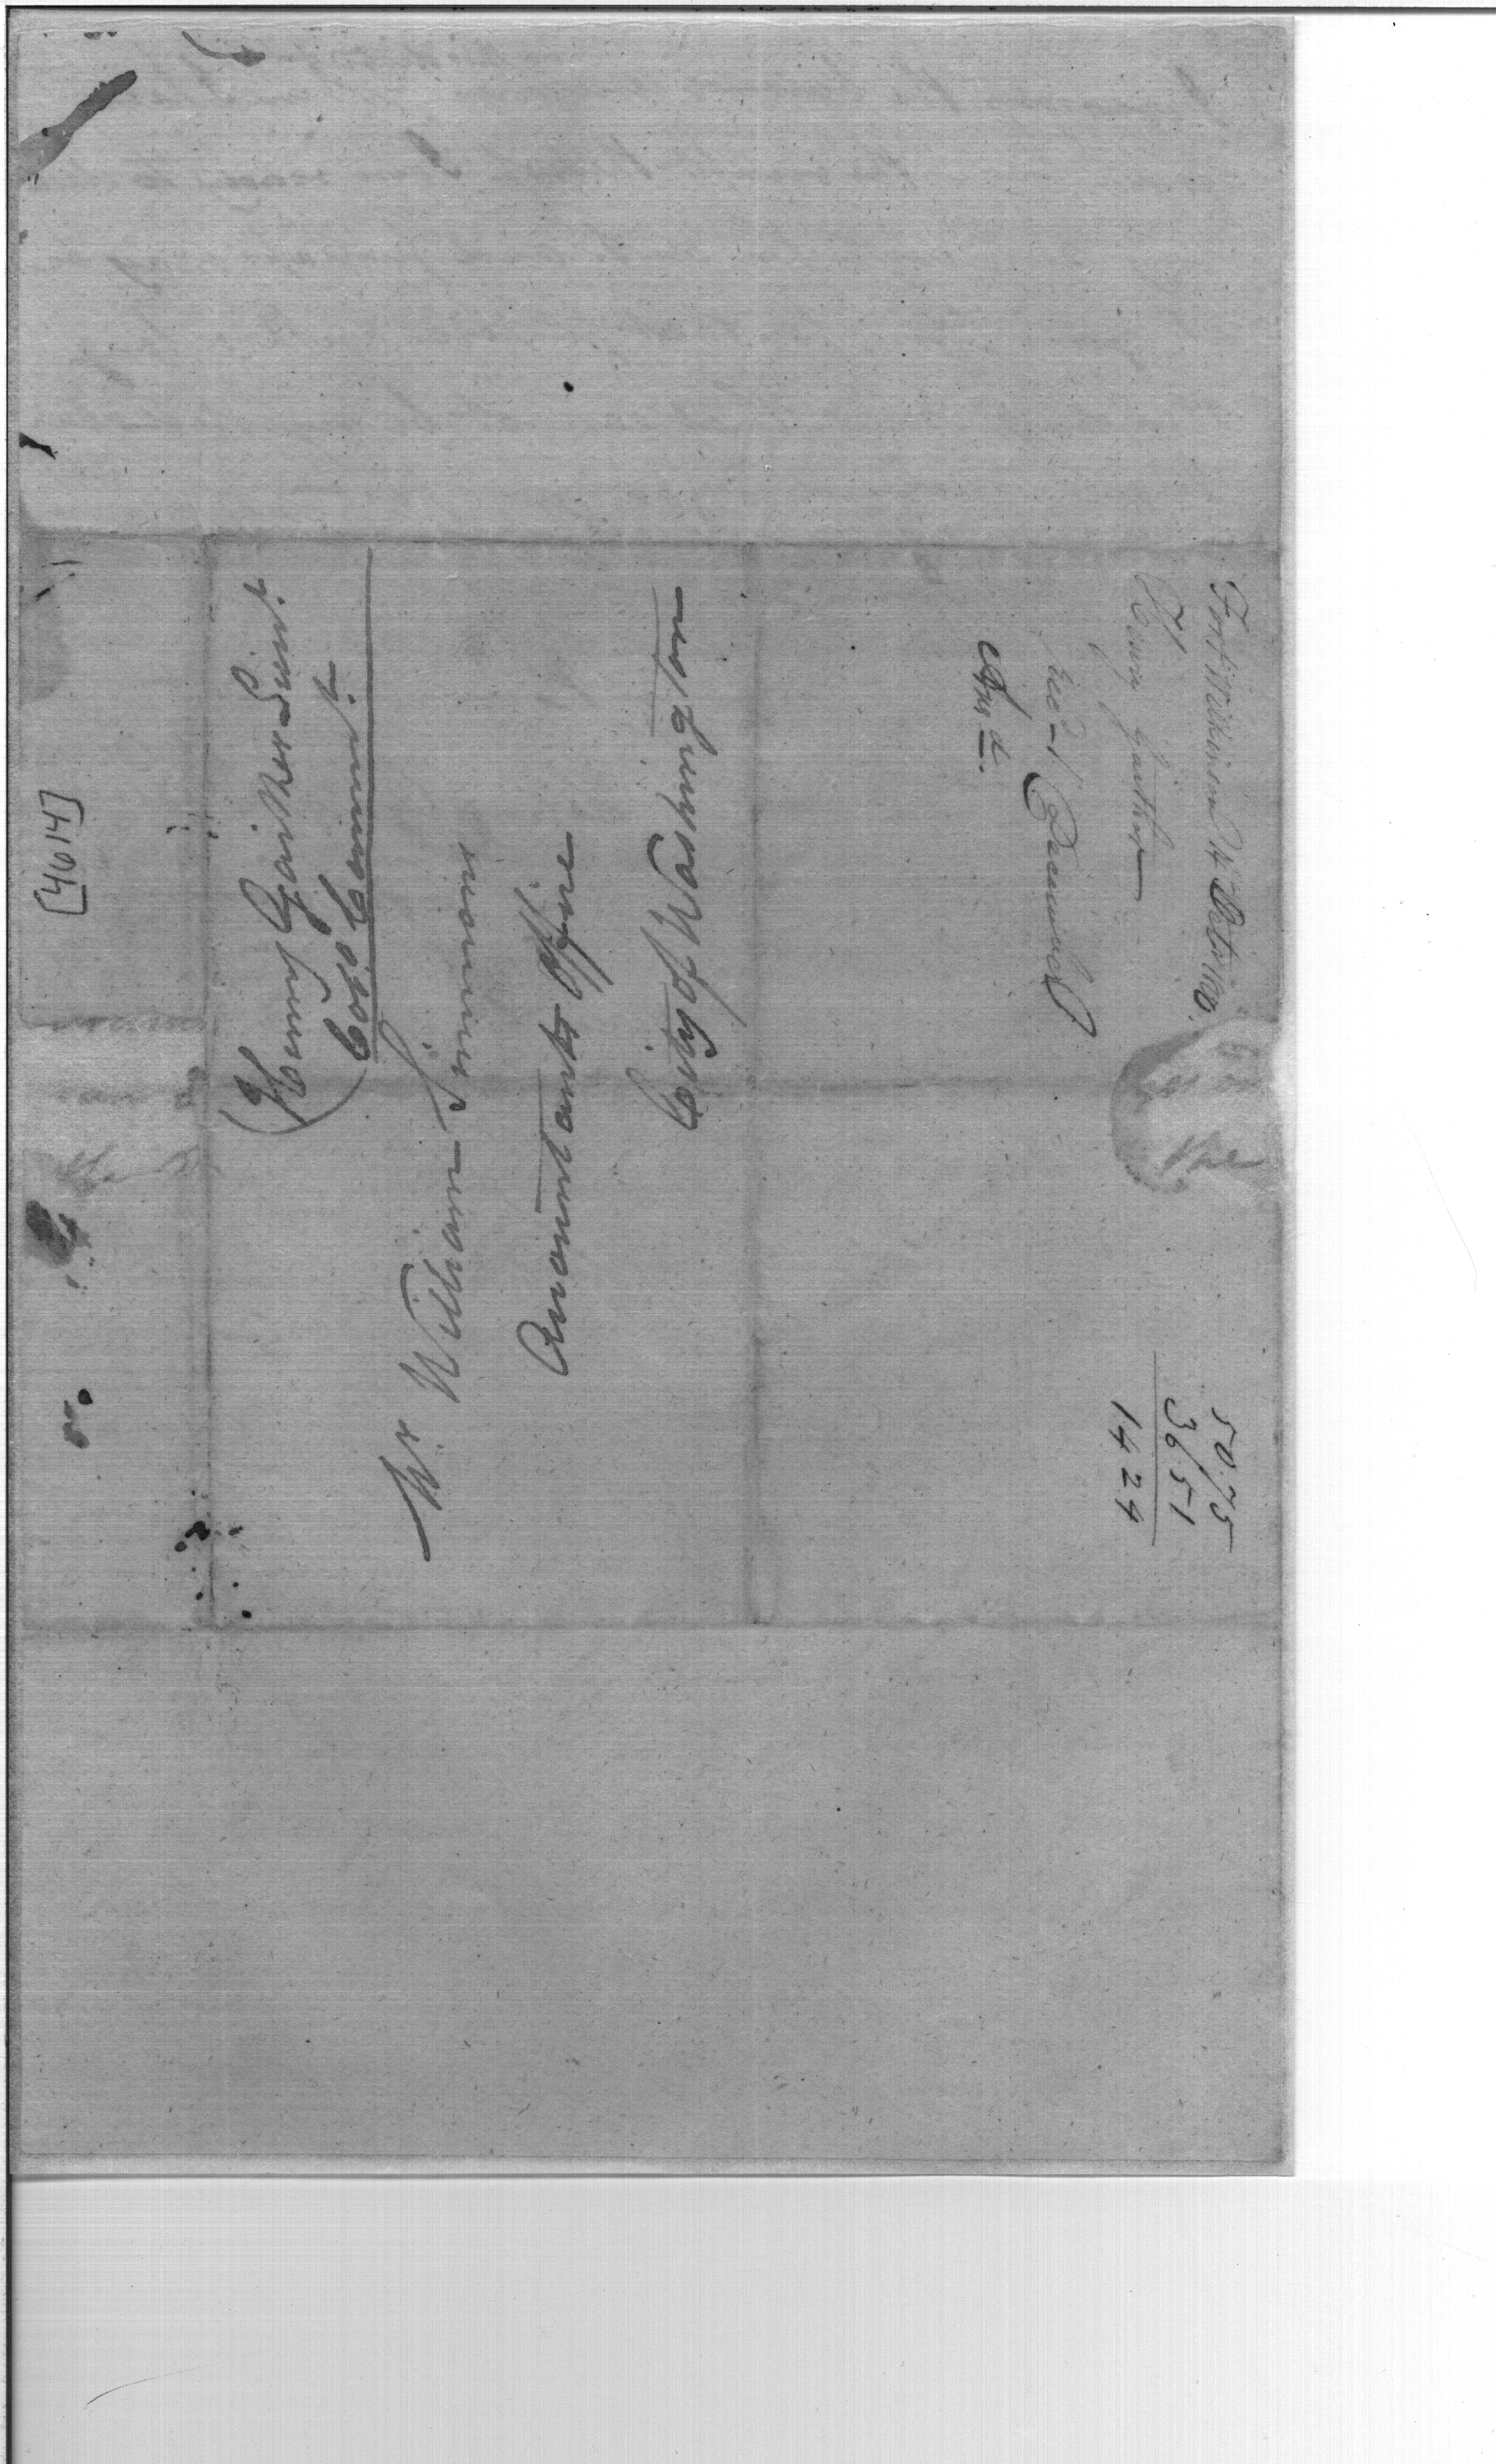 [4614]
Henry Gaither Lieut.
Col. Comd.t
Mr. William Simmons
Accountants Office
City of Washington
Fort Wilkinson 14 Octo. 1800.
Henry Gaither
rec'd - 1 December
Ans.d.
50.75
36 51
14 24
the